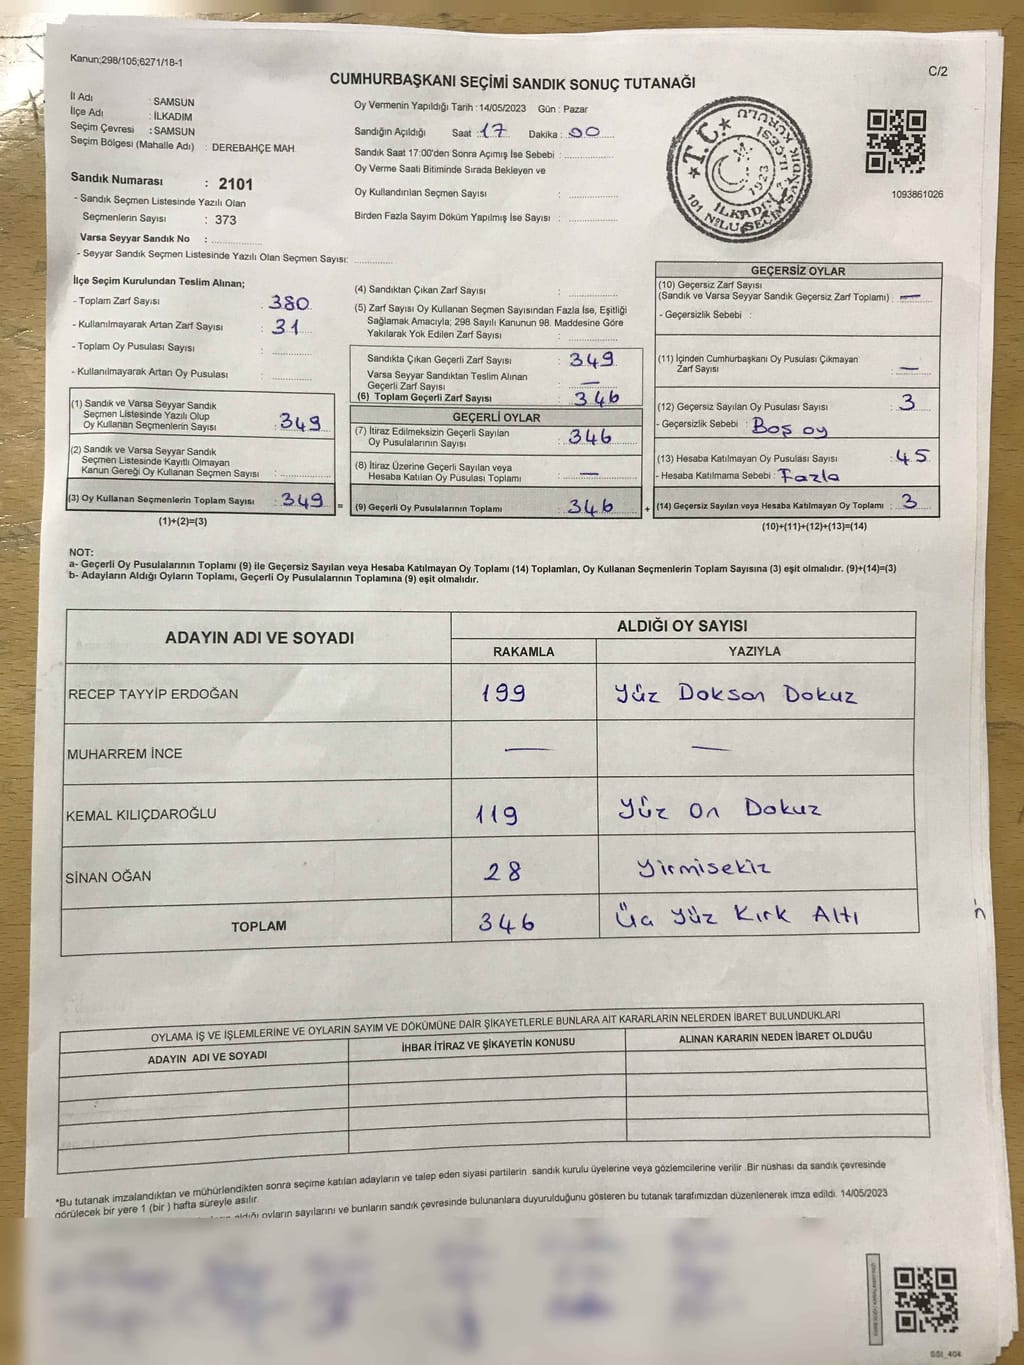 Kanun;298/105;6271/18-1
C/2
CUMHURBAŞKANI SEÇİMİ SANDIK SONUÇ TUTANAĞI
İl Adı : SAMSUN
İlçe Adı : İLKADIM
Seçim Çevresi : SAMSUN
Seçim Bölgesi (Mahalle Adı) : DEREBAHÇE MAH
Sandık Numarası : 2101
- Sandık Seçmen Listesinde Yazılı Olan
Seçmenlerin Sayısı : 373
Varsa Seyyar Sandık No :
- Seyyar Sandık Seçmen Listesinde Yazılı Olan Seçmen Sayısı:
Oy Vermenin Yapıldığı Tarih : 14/05/2023 Gün : Pazar
Sandığın Açıldığı Saat : 17 Dakika : 00
Sandık Saat 17:00'den Sonra Açımış İse Sebebi :
Oy Verme Saati Bitiminde Sırada Bekleyen ve
Oy Kullandırılan Seçmen Sayısı :
Birden Fazla Sayım Döküm Yapılmış İse Sayısı :
T.C.
1923
İLKADIM
1093861026
İlçe Seçim Kurulundan Teslim Alınan;
- Toplam Zarf Sayısı : 380
- Kullanılmayarak Artan Zarf Sayısı : 31
- Toplam Oy Pusulası Sayısı :
- Kullanılmayarak Artan Oy Pusulası :
(1) Sandık ve Varsa Seyyar Sandık
Seçmen Listesinde Yazılı Olup
Oy Kullanan Seçmenlerin Sayısı : 349
(2) Sandık ve Varsa Seyyar Sandık
Seçmen Listesinde Kayıtlı Olmayan
Kanun Gereği Oy Kullanan Seçmen Sayısı :
(3) Oy Kullanan Seçmenlerin Toplam Sayısı : 349 =
(1)+(2)=(3)
(4) Sandıktan Çıkan Zarf Sayısı :
(5) Zarf Sayısı Oy Kullanan Seçmen Sayısından Fazla İse, Eşitliği
Sağlamak Amacıyla; 298 Sayılı Kanunun 98. Maddesine Göre
Yakılarak Yok Edilen Zarf Sayısı :
Sandıkta Çıkan Geçerli Zarf Sayısı : 349
Varsa Seyyar Sandıktan Teslim Alınan
Geçerli Zarf Sayısı : —
(6) Toplam Geçerli Zarf Sayısı : 346
GEÇERLİ OYLAR
(7) İtiraz Edilmeksizin Geçerli Sayılan
Oy Pusulalarının Sayısı : 346
(8) İtiraz Üzerine Geçerli Sayılan veya
Hesaba Katılan Oy Pusulası Toplamı : —
(9) Geçerli Oy Pusulalarının Toplamı : 346 +
GEÇERSİZ OYLAR
(10) Geçersiz Zarf Sayısı
(Sandık ve Varsa Seyyar Sandık Geçersiz Zarf Toplamı) : —
- Geçersizlik Sebebi :
(11) İçinden Cumhurbaşkanı Oy Pusulası Çıkmayan
Zarf Sayısı : —
(12) Geçersiz Sayılan Oy Pusulası Sayısı : 3
- Geçersizlik Sebebi : Boş oy
(13) Hesaba Katılmayan Oy Pusulası Sayısı : 45
- Hesaba Katılmama Sebebi : Fazla
(14) Geçersiz Sayılan veya Hesaba Katılmayan Oy Toplamı : 3
(10)+(11)+(12)+(13)=(14)
NOT:
a- Geçerli Oy Pusulalarının Toplamı (9) ile Geçersiz Sayılan veya Hesaba Katılmayan Oy Toplamı (14) Toplamları, Oy Kullanan Seçmenlerin Toplam Sayısına (3) eşit olmalıdır. (9)+(14)=(3)
b- Adayların Aldığı Oyların Toplamı, Geçerli Oy Pusulalarının Toplamına (9) eşit olmalıdır.
ADAYIN ADI VE SOYADI ALDIĞI OY SAYISI
RAKAMLA YAZIYLA
RECEP TAYYİP ERDOĞAN 199 Yüz Doksan Dokuz
MUHARREM İNCE — —
KEMAL KILIÇDAROĞLU 119 Yüz On Dokuz
SİNAN OĞAN 28 Yirmisekiz
TOPLAM 346 Üç Yüz Kırk Altı
OYLAMA İŞ VE İŞLEMLERİNE VE OYLARIN SAYIM VE DÖKÜMÜNE DAİR ŞİKAYETLERLE BUNLARA AİT KARARLARIN NELERDEN İBARET BULUNDUKLARI
ADAYIN ADI VE SOYADI İHBAR İTİRAZ VE ŞİKAYETİN KONUSU ALINAN KARARIN NEDEN İBARET OLDUĞU
*Bu tutanak imzalandıktan ve mühürlendikten sonra seçime katılan adayların ve talep eden siyasi partilerin sandık kurulu üyelerine veya gözlemcilerine verilir .Bir nüshası da sandık çevresinde
görülecek bir yere 1 (bir ) hafta süreyle asılır.
aldığı oyların sayılarını ve bunların sandık çevresinde bulunanlara duyurulduğunu gösteren bu tutanak tarafımızdan düzenlenerek imza edildi. 14/05/2023